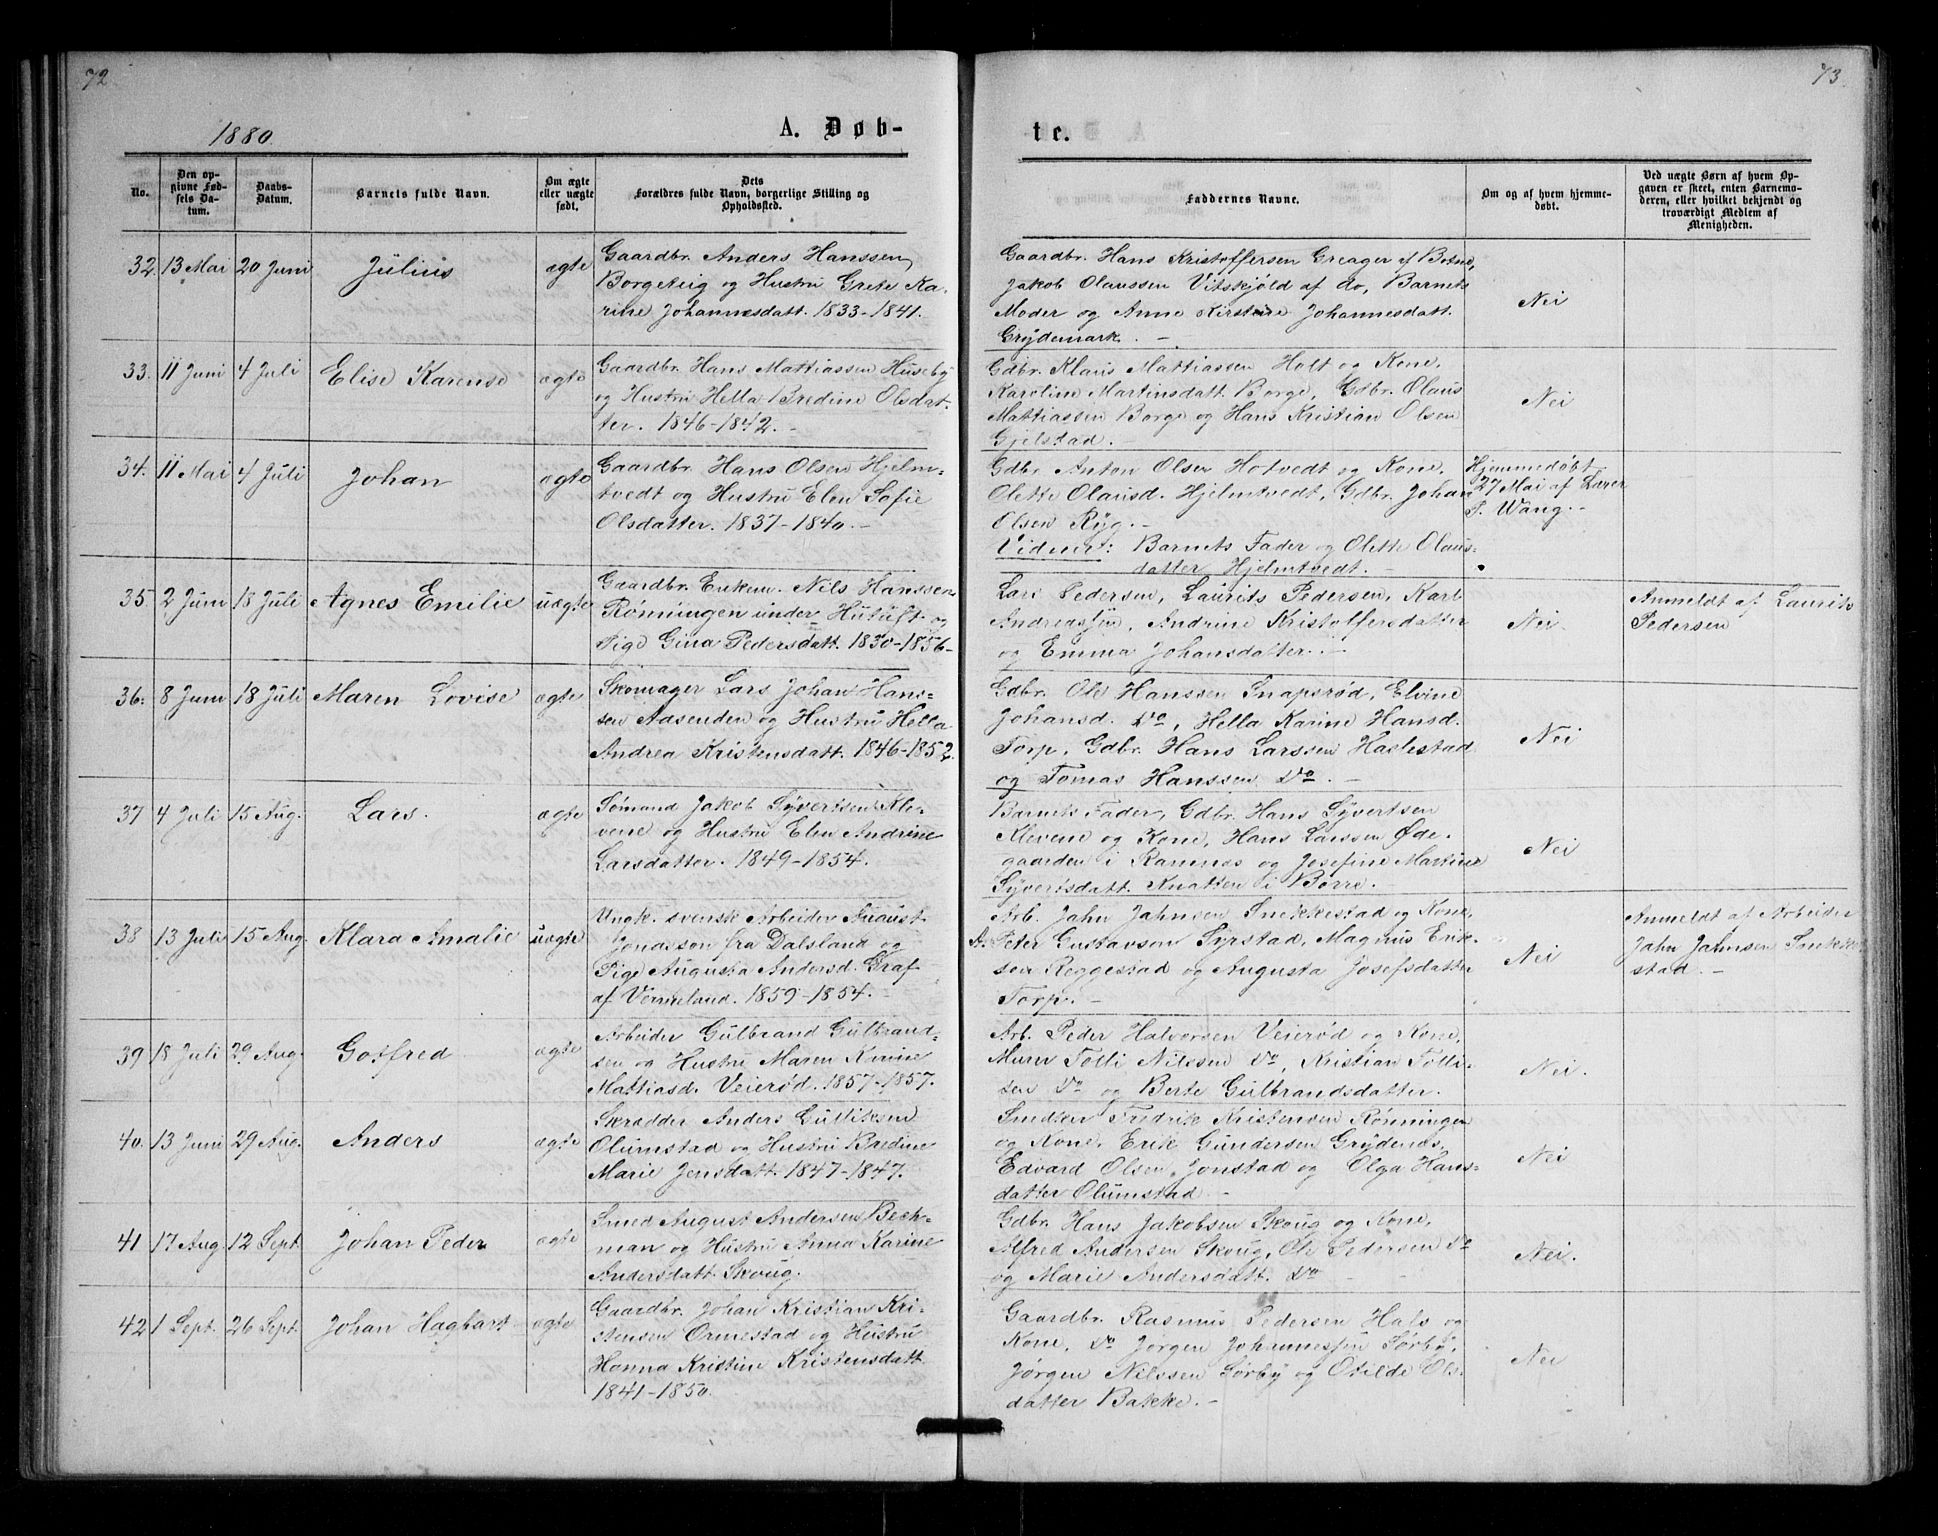 72
73
1880
A. Døb-
te.
No.
Den op-
givne Fød-
sels Da-
tum.
Daabs-
Datum.
Barnets fulde Navn.
Om ægte
eller uægte
født.
Dets
Forældres fulde Navn, borgerlige Stilling og
Opholdssted.
Faddernes Navne.
Om og af hvem hjemme-
døbt.
Ved uægte Børn af hvem Op-
gaven er skeet, enten Barnemo-
deren, eller hvilket bekjendt og
troværdigt Medlem af
Menigheden.
32. 13 Mai 20 Juni Julius ægte
Gaardbr. Anders Hanssen
Borgeteig og Hustru Grete Ka-
rine Johannesdatt. 1833-1841.
Gaardbr. Hans Kristoffersen Greager af Botne,
Jakob Olaussen Vitskjöld af do, Barnets
Moder og Anne Kirstine Johannesdatt.
Grydemark. -
Nei
33. 11 Juni 4 Juli Elise Karense ægte
Gaardbr. Hans Mattiassen Huseby
og Hustru Hella Bredine Olsdat-
ter. 1846-1842. -
Gdbr. Klaus Mattiassen Holt og Kone,
Karoline Martinsdatt. Borge, Gdbr. Olaus
Mattiassen Borge og Hans Kristian Olsen
Gjelstad. -
Nei
34. 11 Mai 4 Juli Johan ægte
Gaardbr. Hans Olsen Hjelm-
tvedt og Hustru Elen Sofie
Olsdatter. 1837-1840. -
Gdbr. Anton Olsen Hotvedt og Kone,
Olette Olausd. Hjelmtvedt, Gdbr. Johan
Olsen Ryg. -
Vidner: Barnets Fader og Olette Olaus-
datter Hjelmtvedt. -
Hjemmedøbt
27 Mai af Lærer
P. Wang. -
35. 2 Juni 18 Juli Agnes Emilie uægte
Gaardbr. Enkem. Nils Hanssen
Rønningen under Hutuft og
Pige Gina Pedersdatt. 1830-1856-
Lars Pedersen, Laurits Pedersen, Karl
Andreassen, Andrine Kristoffersdatter
og Emma Johansdatter. -
Nei.
Anmeldt af Laurits
Pedersen
36. 8 Juni 18 Juli Maren Lovise ægte
Skomager Lars Johan Hans-
sen Aasenden og Hustru Hella
Andrea Kristensdatt. 1846-1852.
Gdbr. Ole Hanssen Snapsrød, Elvine
Johansd. Do, Hella Karine Hansd.
Torp, Gdbr. Hans Larssen Haslestad
og Tomas Hanssen Do. -
Nei
37 4 Juli 15 Aug. Lars. ægte
Sømand Jakob Syvertsen Kle-
vene og Hustru Elen Andrine
Larsdatter. 1849-1854.
Barnets Fader, Gdbr. Hans Syvertsen
Klevene og Kone, Hans Larssen Øde-
gaarden i Ramnes og Josefine Martine
Syvertsdatt. Knatten i Borre. -
Nei
38 13 Juli 15 Aug. Klara Amalie uægte
Ungk. svensk Arbeider August
Jonasson fra Dalsland og
Pige Augusta Andersd. Graf
af Vermeland. 1859-1854. -
Arb. Jahn Jahnsen Snekkestad og Kone,
Peter Gustavson Syrstad, Magnus Erik-
sen Reggestad og Augusta Josefsdatter
Torp. -
Nei
Anmeldt af Arbeider
Jahn Jahnsen Snekke-
stad. -
39 18 Juli 29 Aug. Gotfred ægte
Arbeider Gulbrand Gulbrand-
sen og Hustru Maren Karine
Mattiasd. Veierød. 1857-1857.
Arb. Peder Halvorsen Veierød og Kone,
Murer Tolli Nilssen Do, Kristian Tolli-
sen Do og Berte Gulbrandsdatter.
Nei.
40. 13 Juni 29 Aug. Anders ægte
Skrædder Anders Gulliksen
Olumstad og Hustru Bredine
Marie Jensdatt. 1847-1847.
Snedker Fredrik Kristensen Rønningen
og Kone, Erik Gundersen Grydenæs,
Edvard Olsen Jonstad og Olga Hans-
datter Olumstad. -
Nei
41 17 Aug. 12 Sept. Johan Peder ægte
Smed August Andersen Bech-
man og Hustru Anna Karine
Andersdatt. Skoug.
Gdbr. Hans Jakobsen Skoug og Kone,
Alfred Andersen Skoug, Ole Pedersen Do
og Marie Andersdatt. Do -
Nei.
42 1 Sept. 26 Sept. Johan Hagbart ægte
Gaardbr. Johan Kristian Kri-
stensen Ormestad og Hustru
Hanna Kristine Kristensdatt.
1841-1850.
Gaardbr. Rasmus Pedersen Hals og
Kone, Do Jørgen Johannessen Sørby,
Jørgen Nilssen Sørby og Otilde Ols-
datter Bakke. -
Nei